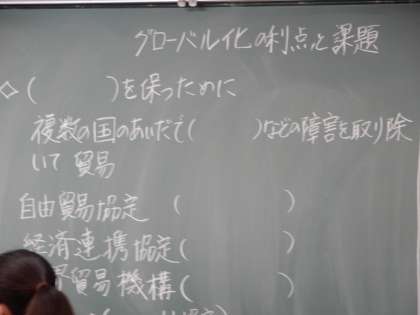 グローバル化の利点と課題
◇(　　　)を保つために
複数の国のあいだで(　　　)などの障害を取り除
いて 貿易
自由貿易協定 (　　　　)
経済連携協定(　　　　)
貿易機構(　　　　)